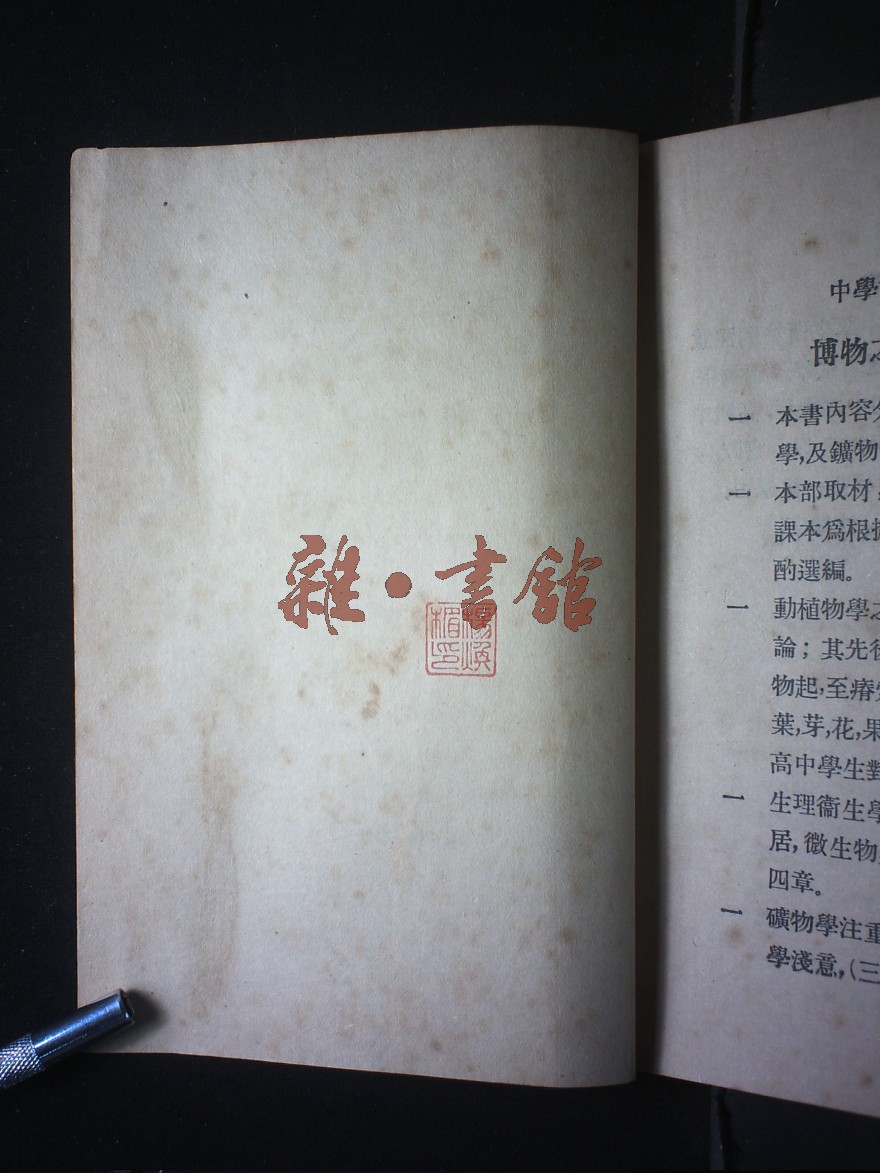 雜·書館
楊煥
楣印
中學
博物
一 本書內容分
學,及鑛物
一 本部取材,
課本爲根據
酌選編。
一 動植物學之
論;其先後
物起,至瘠
葉,芽,花,果
高中學生對
一 生理衞生學
居,微生物,
四章。
一 礦物學注重
學淺意,(三